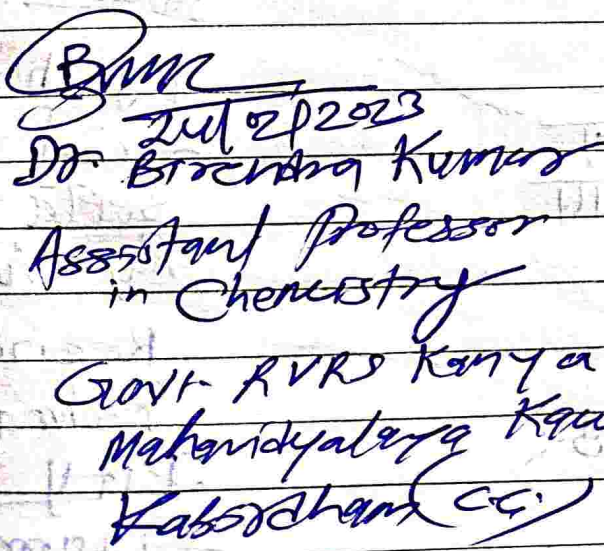 24/02/2023
Dr. Birendra Kumar
Assistant Professor
in Chemistry
Govt. RVRS Kanya
Mahavidyalaya Kaw
Kabirdham (C.G.)